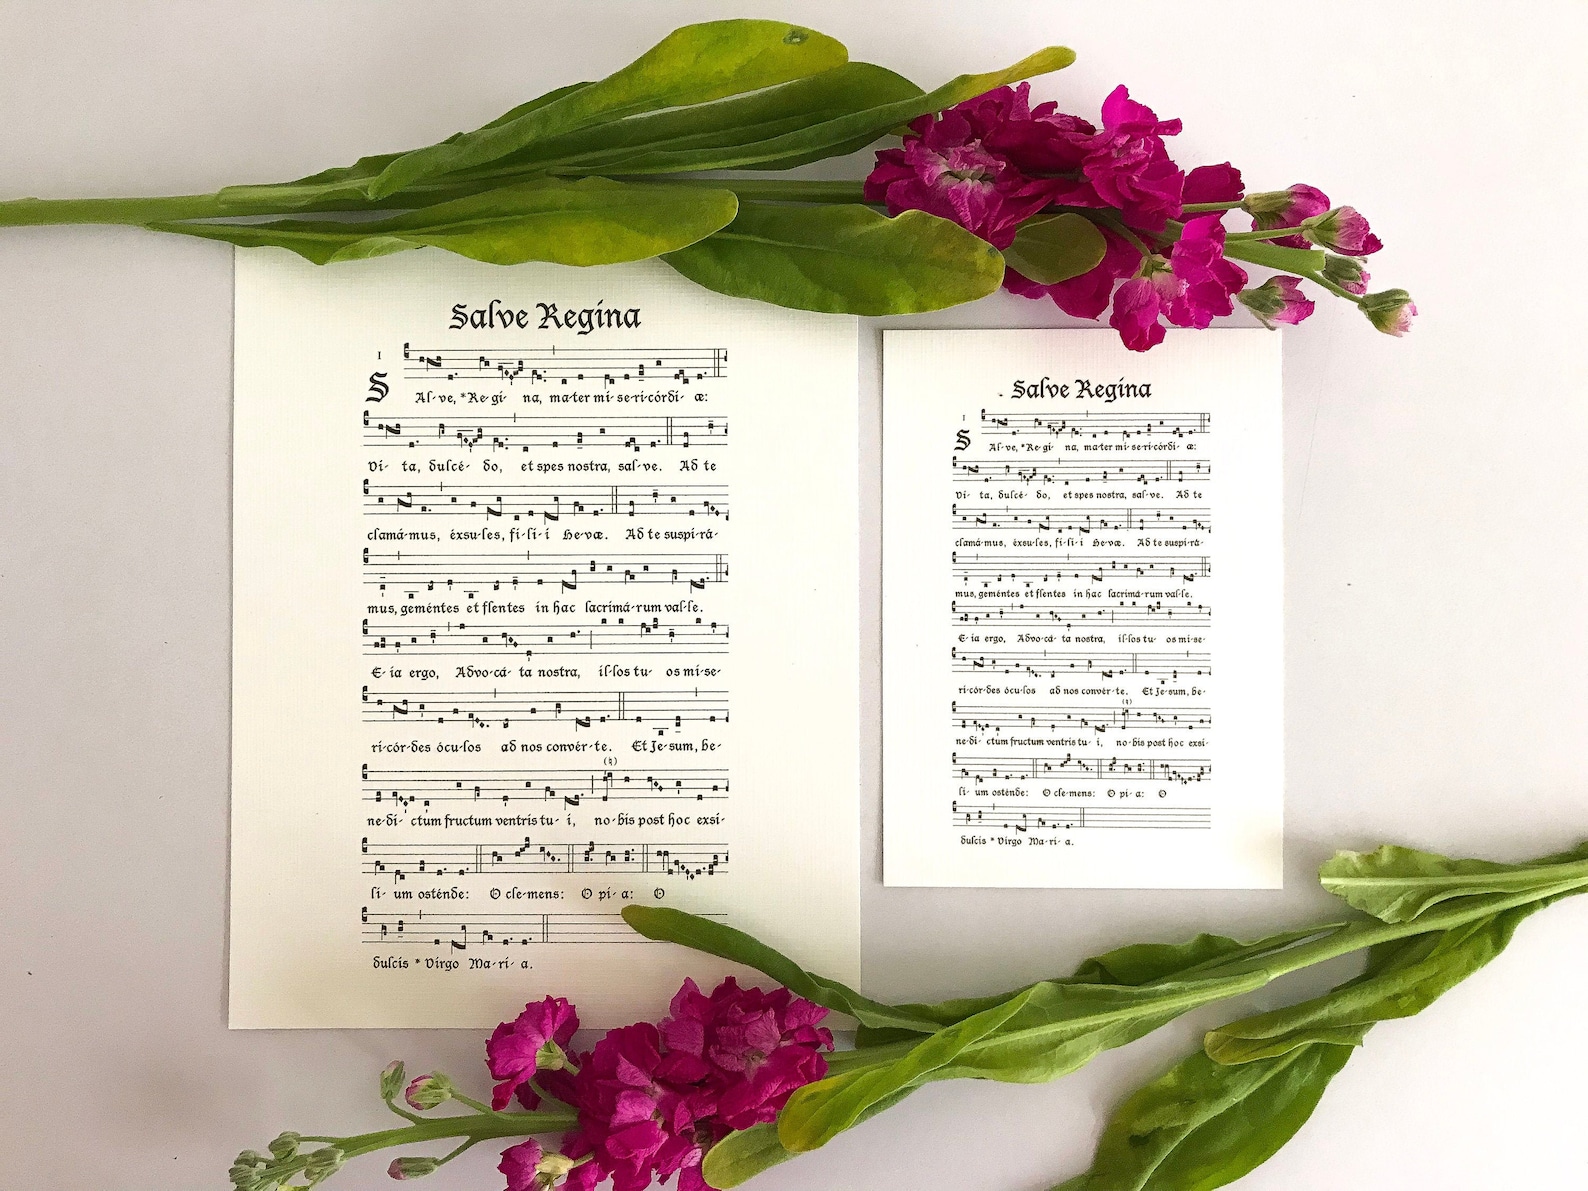 Salve Regina
I
S
Al-ve, *Re-gí-na, ma-ter mi-se-ri-córdi-æ:
Vi-ta, dulcé-do, et spes nostra, sal-ve. Ad te
clamá-mus, éxsu-les, fi-li-i He-væ. Ad te suspi-rá-
mus, geméntes et flentes in hac lacrimá-rum val-le.
E-ia ergo, Advo-cá-ta nostra, il-los tu-os mi-se-
ri-cór-des ócu-los ad nos convér-te. Et Je-sum, be-
(♮)
ne-dí-ctum fructum ventris tu-i, no-bis post hoc exsí-
li-um osténde: O cle-mens: O pi-a: O
dulcis * Virgo Ma-rí-a.
Salve Regina
I
S
Al-ve, *Re-gí-na, ma-ter mi-se-ri-córdi-æ:
Vi-ta, dulcé-do, et spes nostra, sal-ve. Ad te
clamá-mus, éxsu-les, fi-li-i He-væ. Ad te suspi-rá-
mus, geméntes et flentes in hac lacrimá-rum val-le.
E-ia ergo, Advo-cá-ta nostra, il-los tu-os mi-se-
ri-cór-des ócu-los ad nos convér-te. Et Je-sum, be-
(♮)
ne-dí-ctum fructum ventris tu-i, no-bis post hoc exsí-
li-um osténde: O cle-mens: O pi-a: O
dulcis * Virgo Ma-rí-a.